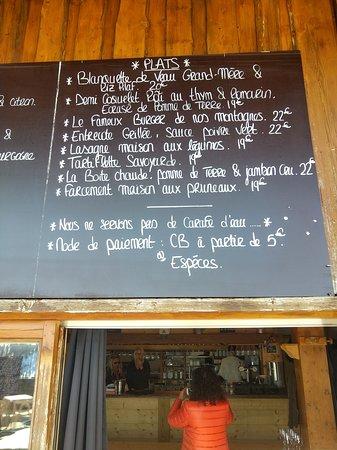 * PLATS *
* Blanquette de Veau Grand-Mère &
Riz Pilaf. 20€
* Demi Coquelet Rôti au thym & Romarin.
Ecrasé de Pomme de Terre 19€
* Le Fameux Burger de nos montagnes. 22€
* Entrecôte Grillée, sauce poivre Vert. 22€
* Lasagne maison aux légumes. 19€
* Tartiflette Savoyarde. 19€
* La Boîte chaude, pomme de Terre & jambon Cru. 22€
* Farcement maison aux pruneaux. 19€
& citron.
&
* Nous ne servons pas de Carafe d'eau ..... *
* Mode de paiement : CB à partir de 5€
Espèces.